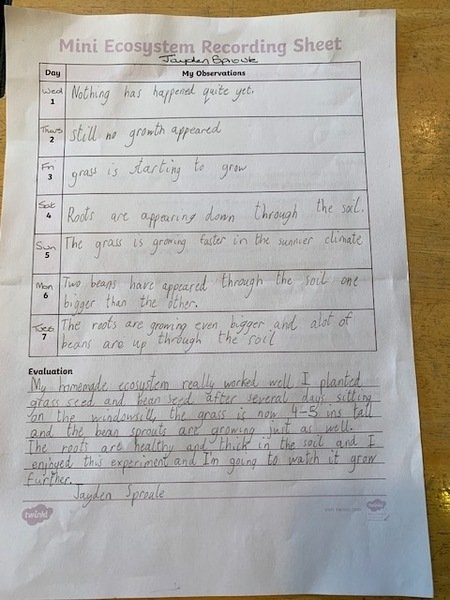 Mini Ecosystem Recording Sheet
Jayden Sproule
Day
My Observations
Wed
1
Nothing has happened quite yet.
Thurs
2
still no growth appeared
Fri
3
grass is starting to grow
Sat
4
Roots are appearing down through the soil.
Sun
5
The grass is growing faster in the sunnier climate
Mon
6
Two beans have appeared through the soil one
bigger than the other.
Tues
7
The roots are growing even bigger and alot of
beans are up through the soil
Evaluation
My homemade ecosystem really worked well I planted
grass seed and bean seed after several days sitting
on the windowsill the grass is now 4-5 ins tall
and the bean sprouts are growing just as well.
The roots are healthy and thick in the soil and I
enjoyed this experiment and I'm going to watch it grow
further.
Jayden Sproule
twinkl